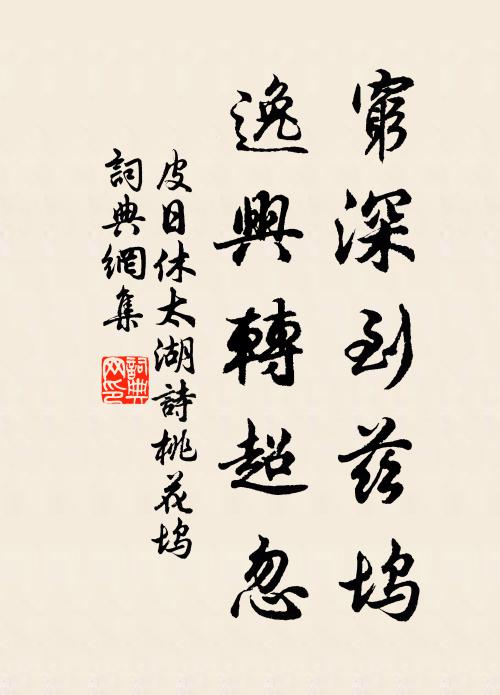 窮深到茲塢
逸興轉超忽
皮日休太湖詩桃花塢
詞典網集
詞典
网印